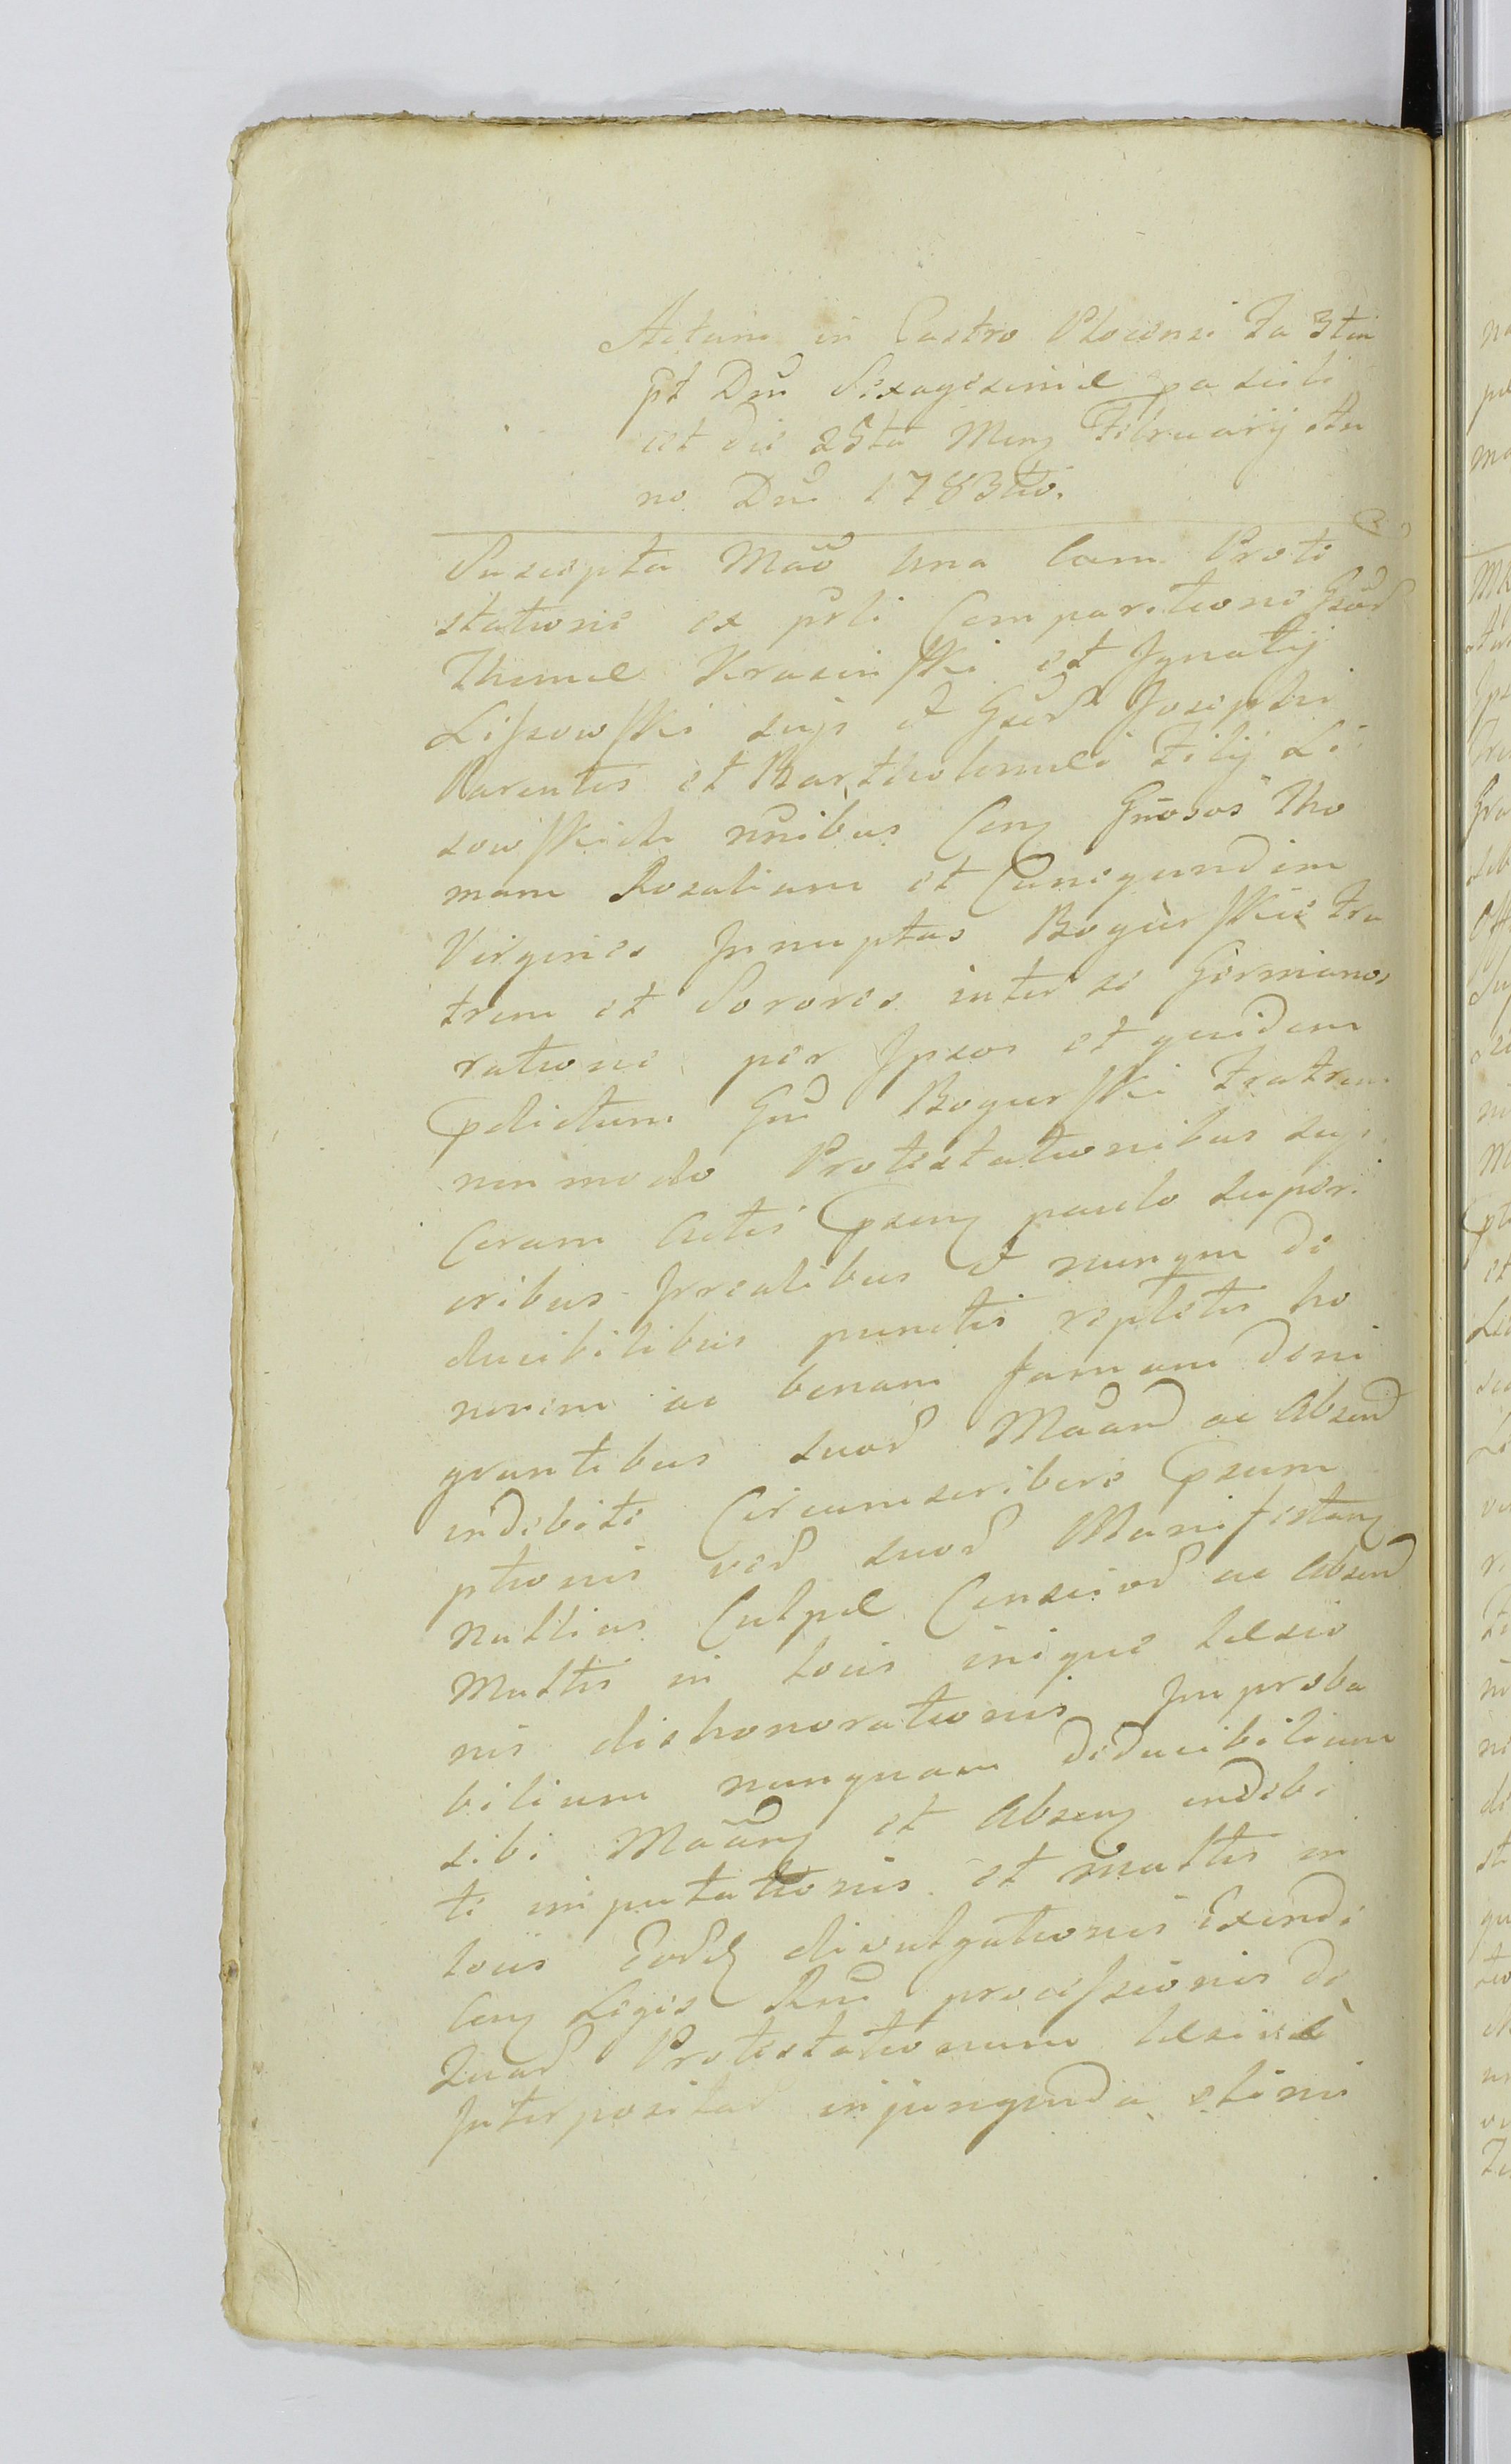 Actum in Castro Plocensi fa 3tia
pt Dnm Sexagesimæ pa scili
cet die 25ta Mens Februarij An
no Dni 1783tio.
Suscepta Maõ una cum Prote
statione ex prli Comparitione Gsor
Thomæ Krasinski et Ignatij
Lissowski suis et Gser Josephi
Parentis et Bartholomæi Filij Li
sowskich nnibus Cong Gnosos Tho
mam Rosaliam et Cunegundem
Virgines Innuptas Bogurskie Fra
trem et Sorores inter se Germanos
ratione per Ipsos et quidem
pdictum Gnm Bogurski Fratrem
non modo Protestationibus suis
Coram Actis psens paulo superi
oribus Irrealibus et nunqm de
ducibilibus punctis repletis ho
norem ac bonam famam deni
grantibus suor Maand ac Absend
indebite Circumscribere psum
ptionis ver suor Manifestans
nullius Culpæ Consciod ac Absend
Multis in locis inique læsio
nis dishonorationis Improba
bilium nunquam deducibilium
sibi Maang et Absens indebi
te imputationis et multis in
locis Eord divulgationis Exinde
Cong Legis Rni processionis de
quar Protestationum læsive
Interpositar injungenda etini